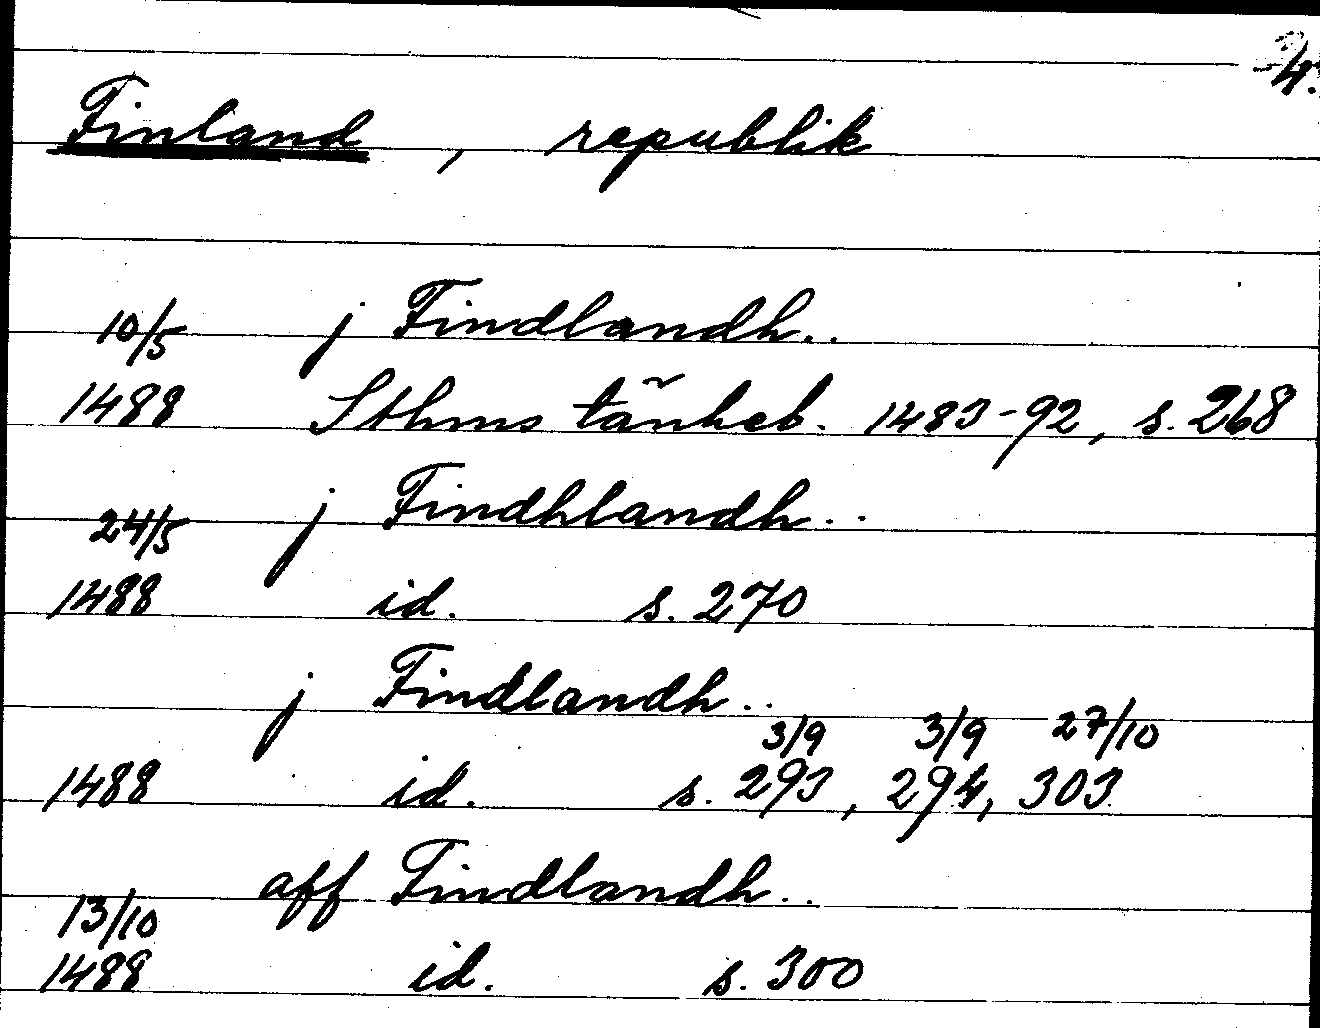 24.
Finland, republik
10/5 j Findlandh..
1488 Sthms tänkeb. 1483-92, s. 268
24/5 j Findhlandh..
1488 id. s. 270
j Findlandh..
3/9 3/9 27/10
1488 id. s. 293, 294, 303
aff Findlandh..
13/10
1488 id. s. 300